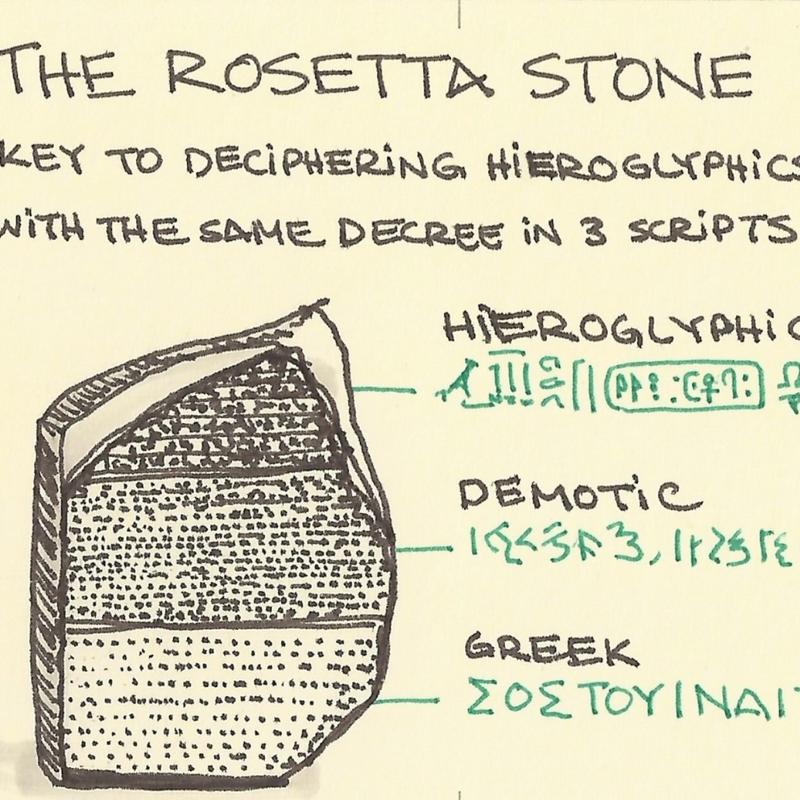 THE ROSETTA STONE
KEY TO DECIPHERING HIEROGLYPHICS
WITH THE SAME DECREE IN 3 SCRIPTS
HIEROGLYPHIC
DEMOTIC
GREEK
ΣΟΣΤΟΥΙΝΔΙ